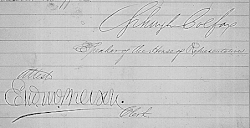 Schuyler Colfax
Speaker of the House of Representatives.
Attest
Edwd McPherson.
Clerk.